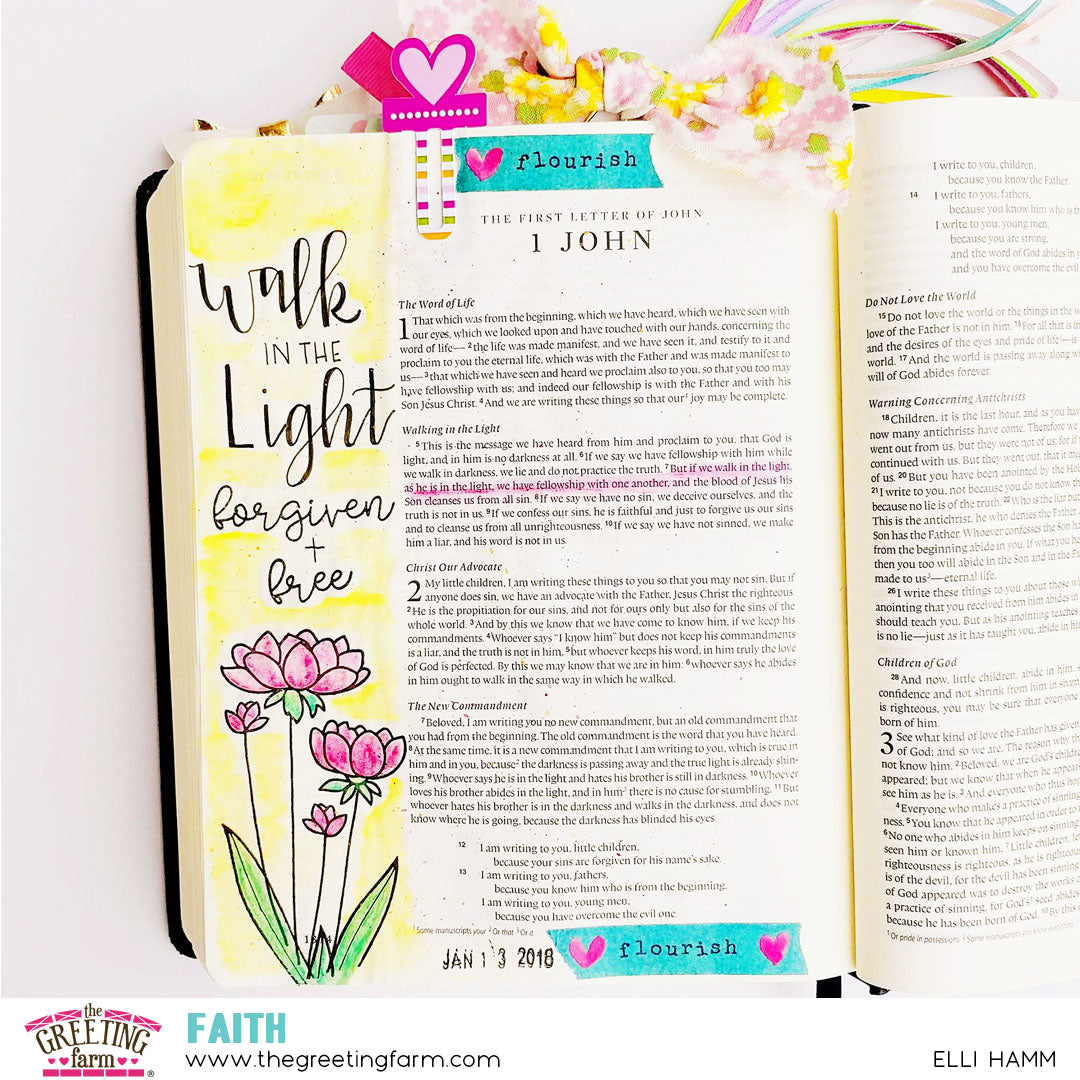 flourish
THE FIRST LETTER OF JOHN
1 JOHN
Walk
IN THE
Light
forgiven
+
free
The Word of Life
1 That which was from the beginning, which we have heard, which we have seen with
our eyes, which we looked upon and have touched with our hands, concerning the
word of life— 2 the life was made manifest, and we have seen it, and testify to it and
proclaim to you the eternal life, which was with the Father and was made manifest to
us— 3 that which we have seen and heard we proclaim also to you, so that you too may
have fellowship with us; and indeed our fellowship is with the Father and with his
Son Jesus Christ. 4 And we are writing these things so that our¹ joy may be complete.
Walking in the Light
5 This is the message we have heard from him and proclaim to you, that God is
light, and in him is no darkness at all. 6 If we say we have fellowship with him while
we walk in darkness, we lie and do not practice the truth. 7 But if we walk in the light,
as he is in the light, we have fellowship with one another, and the blood of Jesus his
Son cleanses us from all sin. 8 If we say we have no sin, we deceive ourselves, and the
truth is not in us. 9 If we confess our sins, he is faithful and just to forgive us our sins
and to cleanse us from all unrighteousness. 10 If we say we have not sinned, we make
him a liar, and his word is not in us.
Christ Our Advocate
2 My little children, I am writing these things to you so that you may not sin. But if
anyone does sin, we have an advocate with the Father, Jesus Christ the righteous.
2 He is the propitiation for our sins, and not for ours only but also for the sins of the
whole world. 3 And by this we know that we have come to know him, if we keep his
commandments. 4 Whoever says "I know him" but does not keep his commandments
is a liar, and the truth is not in him, 5 but whoever keeps his word, in him truly the love
of God is perfected. By this we may know that we are in him: 6 whoever says he abides
in him ought to walk in the same way in which he walked.
The New Commandment
7 Beloved, I am writing you no new commandment, but an old commandment that
you had from the beginning. The old commandment is the word that you have heard.
8 At the same time, it is a new commandment that I am writing to you, which is true in
him and in you, because² the darkness is passing away and the true light is already shin-
ing. 9 Whoever says he is in the light and hates his brother is still in darkness. 10 Whoever
loves his brother abides in the light, and in him³ there is no cause for stumbling. 11 But
whoever hates his brother is in the darkness and walks in the darkness, and does not
know where he is going, because the darkness has blinded his eyes.
12 I am writing to you, little children,
because your sins are forgiven for his name's sake.
13 I am writing to you, fathers,
because you know him who is from the beginning.
I am writing to you, young men,
because you have overcome the evil one.
¹ Some manuscripts your ² Or that ³ Or it
JAN 13 2018
flourish
I write to you, children,
because you know the Father.
14 I write to you, fathers,
because you know him who is
I write to you, young men,
because you are strong,
and the word of God abides in
and you have overcome the evil
Do Not Love the World
15 Do not love the world or the things in the
love of the Father is not in him. 16 For all that is in
and the desires of the eyes and pride of life¹—is
world. 17 And the world is passing away along
will of God abides forever.
Warning Concerning Antichrists
18 Children, it is the last hour, and as you
now many antichrists have come. Therefore
went out from us, but they were not of us; for if
continued with us. But they went out, that it
of us. 20 But you have been anointed by the
21 I write to you, not because you do not know the
because no lie is of the truth. 22 Who is the liar but
This is the antichrist, he who denies the Father
Son has the Father. Whoever confesses the Son
from the beginning abide in you. If what you
then you too will abide in the Son and in the
made to us²—eternal life.
26 I write these things to you about those
anointing that you received from him abides in
should teach you. But as his anointing teaches
is no lie—just as it has taught you, abide in
Children of God
28 And now, little children, abide in him,
confidence and not shrink from him in
is righteous, you may be sure that everyone
born of him.
3 See what kind of love the Father has given
of God; and so we are. The reason why
not know him. 2 Beloved, we are God's
appeared; but we know that when he
see him as he is. 3 And everyone who thus
4 Everyone who makes a practice of sinning
ness. 5 You know that he appeared in order to
6 No one who abides in him keeps on sinning
seen him or known him. 7 Little children,
righteousness is righteous, as he is
is of the devil, for the devil has been sinning
of God appeared was to destroy the works
a practice of sinning, for God's seed abides
because he has been born of God. 10 By
¹ Or pride in possessions ² Some manuscripts
the
GREETING
farm
®
FAITH
www.thegreetingfarm.com
ELLI HAMM